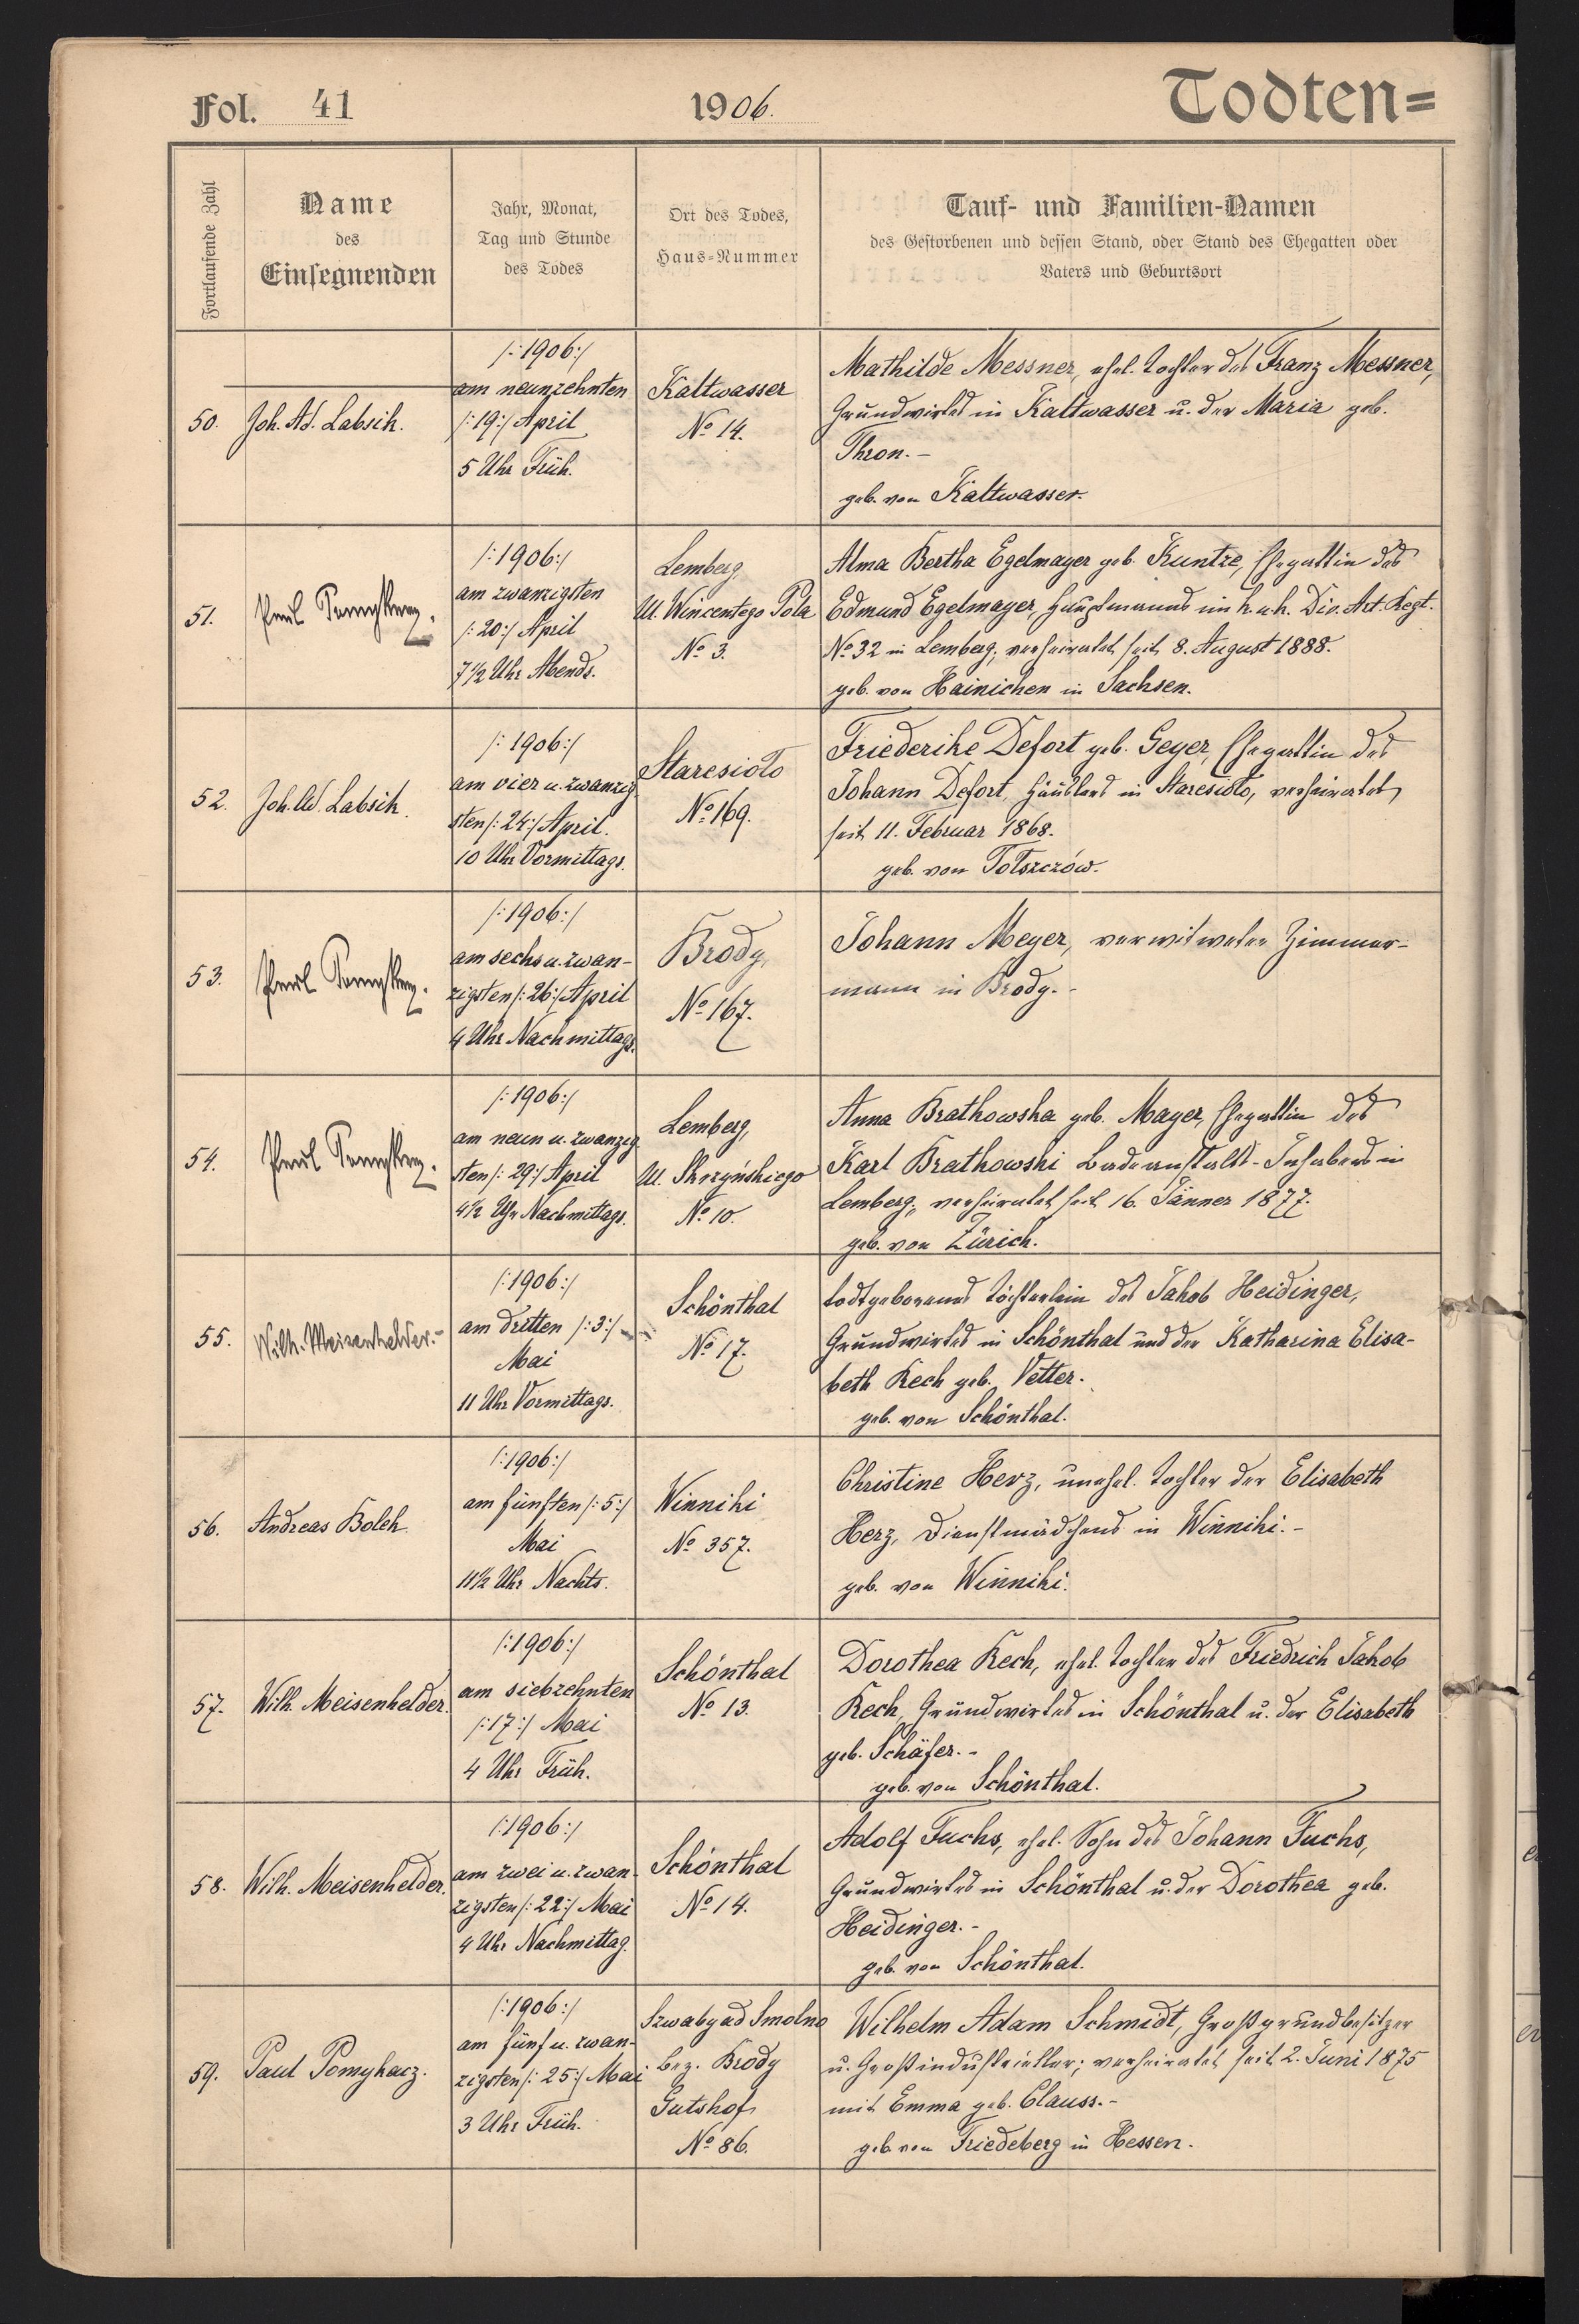 Fol. 41
1906.
Todten=
Fortlaufende Zahl
Name
des
Einsegnenden
Jahr, Monat,
Tag und Stunde
des Todes
Ort des Todes,
Haus-Nummer
Tauf- und Familien-Namen
des Gestorbenen und dessen Stand, oder Stand des Ehegatten oder
Vaters und Geburtsort
50.
Joh. Ad. Labsik.
/:1906:/
am neunzehnten
/:19:/ April
5 Uhr Früh.
Kaltwasser
No 14.
Mathilde Messner, ehel. Tochter des Franz Messner,
Grundwirtes in Kaltwasser u. der Maria geb.
Thron.-
geb. von Kaltwasser.
51.
Paul Pomykacz.
/:1906:/
am zwanzigsten
/:20:/ April
7 1/2 Uhr Abends.
Lemberg,
Ul. Wincentego Pola
No 3.
Alma Bertha Egelmayer geb. Kuntze, Ehegattin des
Edmund Egelmayer, Hauptmanns im k. u. k. Div. Art. Regt.
No 32 in Lemberg; verheiratet seit 8. August 1888.
geb. von Hainichen in Sachsen.
52.
Joh. Ad. Labsik.
/:1906:/
am vier u. zwanzig-
sten /:24:/ April.
10 Uhr Vormittags.
Staresioło
No 169.
Friederike Defort geb. Geyer, Ehegattin des
Johann Defort, Häuslers in Staresioło, verheiratet
seit 11. Februar 1868.
geb. von Tołszczów.
53.
Paul Pomykacz.
/:1906:/
am sechs u. zwan-
zigsten /:26:/ April
4 Uhr Nachmittags.
Brody,
No 167.
Johann Meyer, verwitweter Zimmer-
mann in Brody.-
54.
Paul Pomykacz.
/:1906:/
am neun u. zwanzig-
sten /:29:/ April
4 1/2 Uhr Nachmittags.
Lemberg,
Ul. Skrzyńskiego
No 10.
Anna Bratkowska geb. Mayer, Ehegattin des
Karl Bratkowski Badeanstalts-Inhabers in
Lemberg; verheiratet seit 16. Jänner 1877.
geb. von Zürich.
55.
Wilh. Meisenhelder.-
/:1906:/
am dritten /:3:/
Mai
11 Uhr Vormittags.
Schönthal
No 17.
todtgeborenes Töchterlein des Jakob Heidinger,
Grundwirtes in Schönthal und der Katharina Elisa-
beth Kech geb. Vetter.
geb. von Schönthal.
56.
Andreas Bolek
/:1906:/
am fünften /:5:/
Mai
11 1/2 Uhr Nachts.
Winniki
No 357.
Christine Herz, unehel. Tochter der Elisabeth
Herz, Dienstmädchens in Winniki.-
geb. von Winniki.
57.
Wilh. Meisenhelder.
/:1906:/
am siebzehnten
/:17:/ Mai
4 Uhr Früh.
Schönthal
No 13.
Dorothea Kech, ehel. Tochter des Friedrich Jakob
Kech, Grundwirtes in Schönthal u. der Elisabeth
geb. Schäfer.-
geb. von Schönthal.
58.
Wilh. Meisenhelder.
/:1906:/
am zwei u. zwan-
zigsten /:22:/ Mai
4 Uhr Nachmittag.
Schönthal
No 14.
Adolf Fuchs, ehel. Sohn des Johann Fuchs,
Grundwirtes in Schönthal u. der Dorothea geb.
Heidinger.-
geb. von Schönthal.
59.
Paul Pomykacz.
/:1906:/
am fünf u. zwan-
zigsten /:25:/ Mai
3 Uhr Früh.
Szwaby ad Smolno
bez. Brody
Gutshof
No 86.
Wilhelm Adam Schmidt, Großgrundbesitzer
u. Großindustrieller; verheiratet seit 2. Juni 1875
mit Emma geb. Clauss.-
geb. von Friedeberg in Hessen.